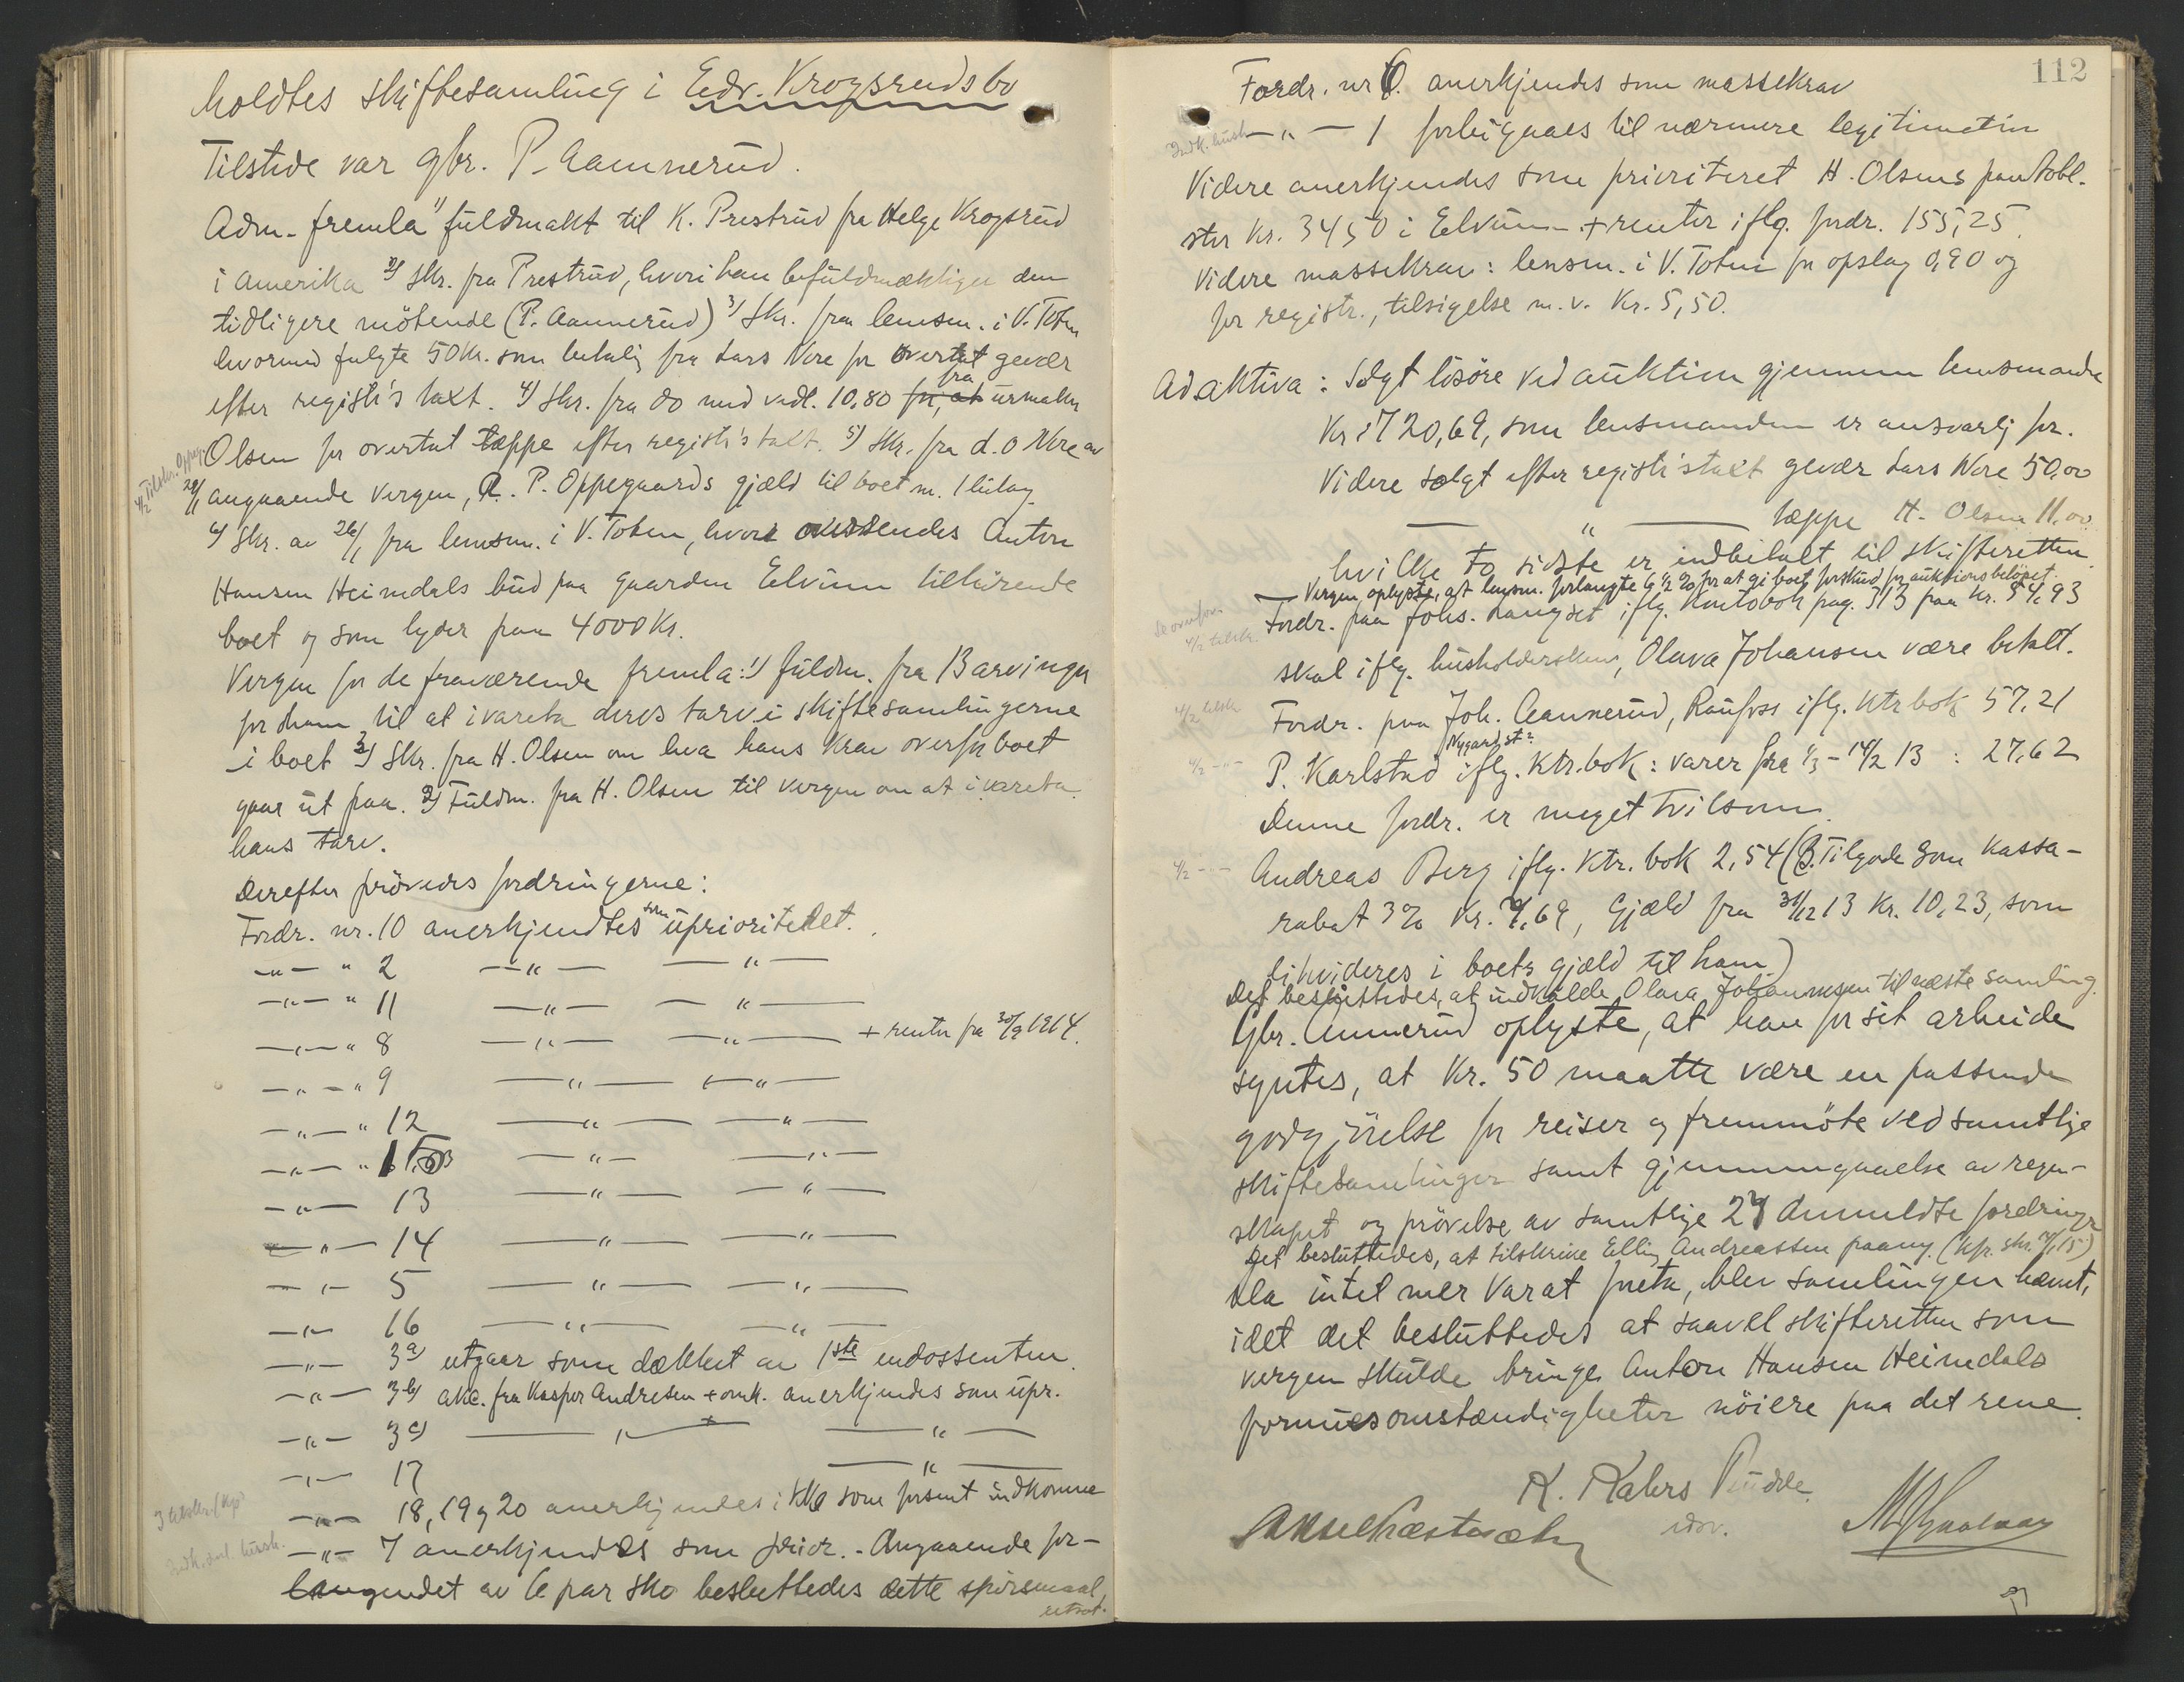 holdtes skiftesamling i Edv. Krogsruds bo
Tilstede var gbr. P. Aannerud.
Adm. fremla 1) fuldmakt til K. Prestrud fra Helge Krogsrud
i Amerika 2) skr. fra Prestrud, hvori han befuldmægtiger den
tidligere mötende (P. Aannerud) 3) skr. fra lensm. i V. Toten
hvormed fulgte 50 kr. som betaling fra Lars Nere for overtat gevær
efter registr's taxt. 4) skr. fra do med vedl. 10,80 for, at fra urmaker
Olsen for overtat tæppe efter registr's taxt. 5) Skr. fra d.o Nere av
4/2 Tilskr. Oppeg.
28/1 angaaende vergen, R. P. Oppegaards gjæld til boet m. 1 bilag
6) Skr. av 26/1 fra lensm. i V. Toten, hvori oversendes Anton
Hansen Heimdals bud paa gaarden Eelvunn tilhörende
boet og som lyder paa 4000 Kr.
Vergen for de fraværende fremla: 1) fuldm. fra 13 arvinger
for ham til at ivareta deres tarv i skiftesamlingerne
i boet 2) Skr. fra H. Olsen om hva hans krav overfor boet
gaar ut paa. 3) Fuldm. fra H. Olsen til vergen om at ivareta
hans tarv.
Derefter prövedes fordringerne:
Fordr. nr. 10 anerkjendtes som uprioritetet.
—"— " 2 —"— —"—
—"— " 11 —"— —"—
—"— " 8 —"— —"— + renter fra 30/9 1914.
—"— " 9 —"— —"—
—"— " 12 —"— —"—
—"— " 15 —"— —"—
—"— 13 —"— —"—
—"— 14 —"— —"—
—"— 5 —"— —"—
—"— 16 —"— —"—
—"— 3a) utgaar som dækket av 1ste endossenten.
—"— 3b) akc. fra Kasper Andresen + omk. anerkjendes som upr.
—"— 3c) —"— —"—
—"— 17 —"—
3 tilskr. (Kp)
—"— 18, 19 og 20 anerkjendes ikke som forsent indkomne
Indk. hush.
—"— 7 anerkjendes som prior. - Angaaende for-
langendet av 6 par sko besluttedes dette spörsmaal
utsat.
112
Fordr. nr 6. anerkjendes som massekrav
Indk. hush.
—"— 1 forbigaaes til nærmere legitimation
Videre anerkjendes som prioriteret H. Olsens pantobl.
stor kr. 3450 i Eelvunn + renter iflg. fordr. 155,25.
Videre massekrav: lensm. i V. Toten for opslag 0,90 og
for registr., tilsigelse m.v. kr. 5,50.
Ad aktiva: Solgt lösöre ved auktion gjennem lensmanden
Kr. 1720,69, som lensmanden er ansvarlig for.
Videre solgt efter registr's taxt gevær Lars Nere 50,00
—"— tæppe H. Olsen 11,00
hvilke to sidste er indbetalt til skifteretten.
Vergen oplyste, at lensm. forlangte 6 1/2 % for at gi boet forskud for auktionsbelöpet.
Se ovenfor.
4/2 tilskr.
Fordr. paa Johs. Langset iflg. Kontobok pag. 313 paa kr. 54,93
skal iflg. husholdersken, Olava Johansen være betalt.
4/2 tilskr.
Fordr. paa Joh. Aannerud, Raufoss iflg. ktr bok 57,21
Nygard st?
4/2 —"—
P. Karlstad iflg. ktr.bok: varer fra 1/3 - 14/2 13 : 27,62
Denne fordr. er meget tvilsom.
4/2 —"—
Andreas Berg iflg. ktr. bok 2,54 (B. Tilgode som kassa-
rabat 3% kr. 7,69, Gjæld fra 31/12 13 kr. 10,23, som
likvideres i boets gjæld til ham)
Det besluttedes, at indkalde Olava Johannesen til næste samling.
Gbr. Aannerud oplyste, at han for sit arbeide
syntes, at kr. 50 maatte være en passende
godgjörelse for reiser og fremmöte ved samtlige
skiftesamlinger samt gjennemgaaelse av regn-
skapet og prövelse av samtlige 24 anmeldte fordringer
Det besluttedes, at tilskrive Elling Andreassen paany.
Da intet mer var at foreta, blev samlingen hævet,
idet det besluttedes at saavel skifteretten som
vergen skulde bringe Anton Hansen Heimdals
formuesomstændigheter nöiere paa det rene.
K. Kahrs Pindsle
edsv.